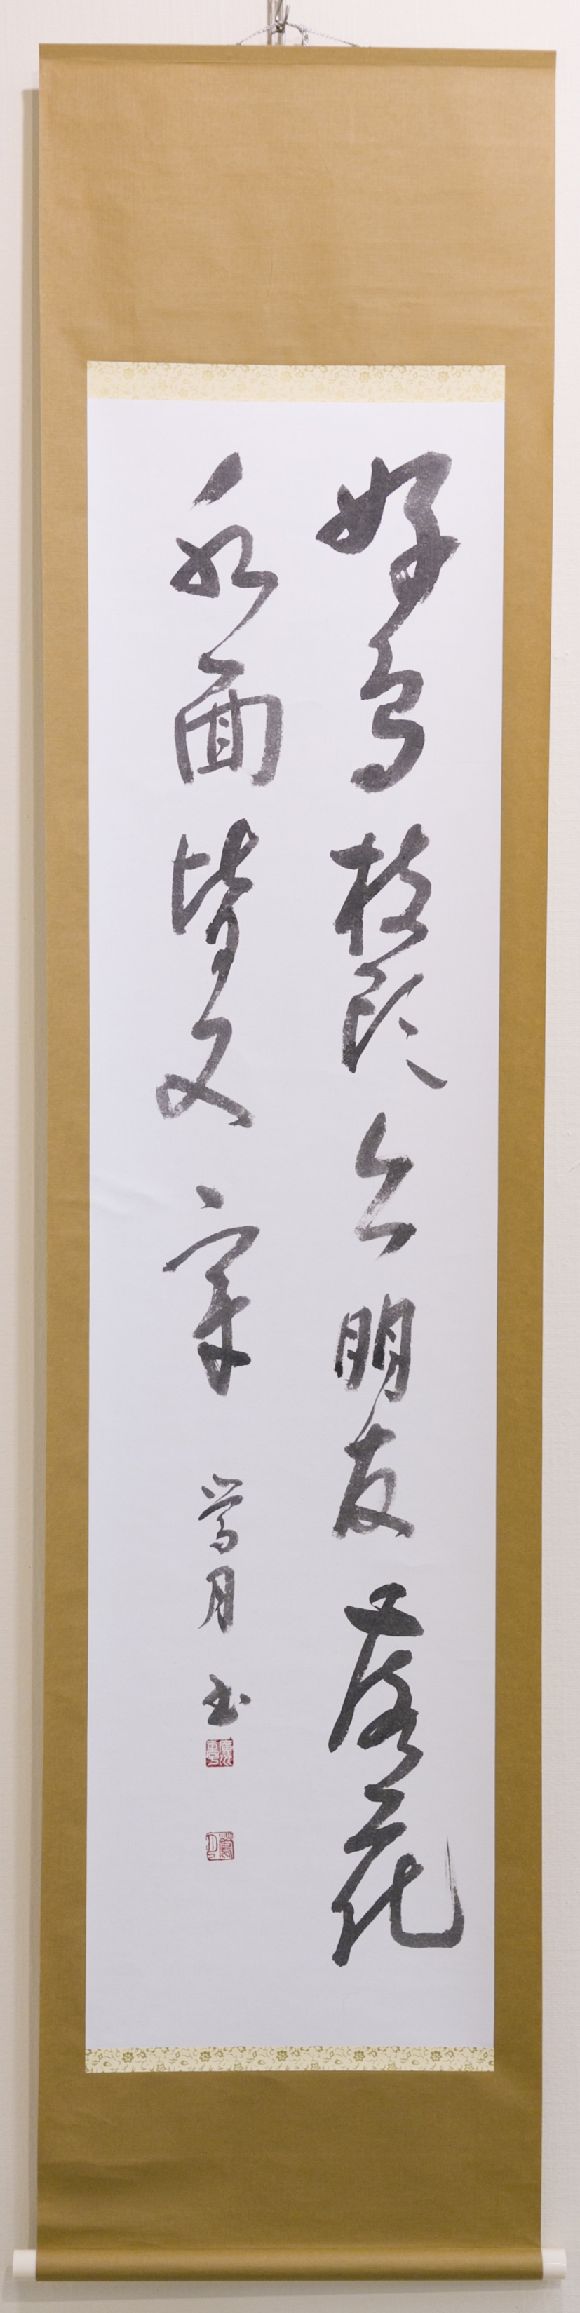 好鳥枝頭亦朋友落花
水面皆文章
鶯月書